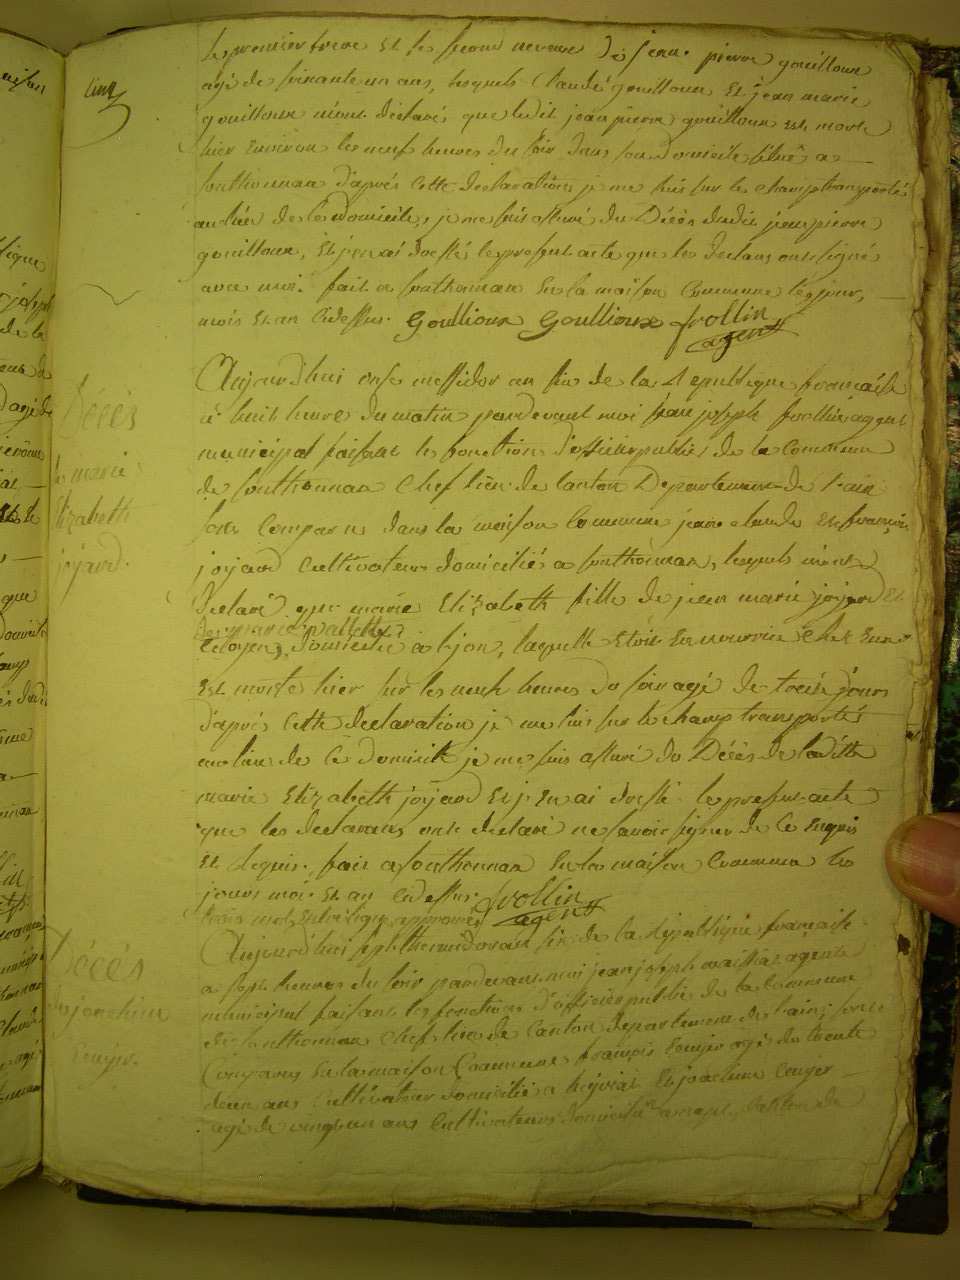 le premier frere et le second neveux dé jean pierre gouilloux
agé de soixante un ans, lesquels Claude gouilloux et jean marie
gouilloux m'ont déclaré que ledit jean pierre gouilloux est mort
hier environ les neuf heures du soir dans son domicile situé a
songthonnax d'aprés cette declaration je me suis sur le champ transporté
au lieu de ce domicile, je me suis assuré du Décés dudit jean pierre
gouilloux, et j'en ai dressé le present acte que les declarans ont signé
avec moi. fait a sonthonnax en la maison Commune les jour,
mois et an cidessus. Goullioux Goullioux frollin
agent
Décés
de marie
Elizabeth
jojard.
Aujourdhui onse messidor an six de la Republique française
à huit heure du matin pardevant moi jean joseph frollin agent
municipal faisant les fonctions d'officier public de la Commune
de sonthonnax Chef lieu de Canton Departement de l'ain
sont Comparu dans la maison Commune jean claude et françois
jojard cultivateurs domiciliés a sonthonnax, lesquels m'ont
declaré que marie Elizabeth fille de jean marie jojard et
de marie
Citoyens domicilié a lyon, laquelle etoit en nourrice chez eux
est morte hier sur les neuf heures du soir agé de treise jours
d'aprés cette declaration je me suis sur le champ transporté
au lieu de ce domicile je me suis assuré du Décés de laditte
marie Elizabeth jojard et j'en ai dressé le present acte
que les declarans ont declaré ne savoir signer de ce enquis
et requis. fait a sonthonnax en la maison Commune les
jours mois et an cidessus. frollin
agent
trois mots entre ligne approuvé
Décés
de joachim
Aujourd'hui sept thermidor an six de la republique française
a sept heures du soir pardevant moi jean joseph agent
municipal faisant les fonctions d'officier public de la Commune
de sonthonnax Chef lieu de Canton departement de l'ain, sont
Comparus en la maison Commune françois agé de trente
deux ans Cultivateur domicilié a et joachim
agé de vingt un ans Cultivateurs domicilié Canton de